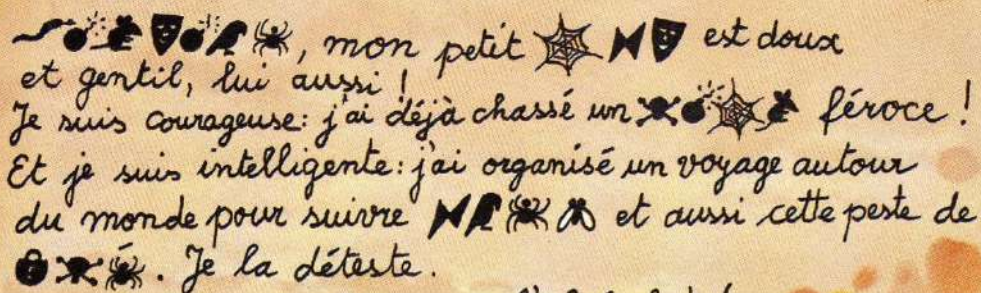 , mon petit est doux
et gentil, lui aussi !
Je suis courageuse : j'ai déjà chassé un féroce !
Et je suis intelligente : j'ai organisé un voyage autour
du monde pour suivre et aussi cette peste de
. Je la déteste.